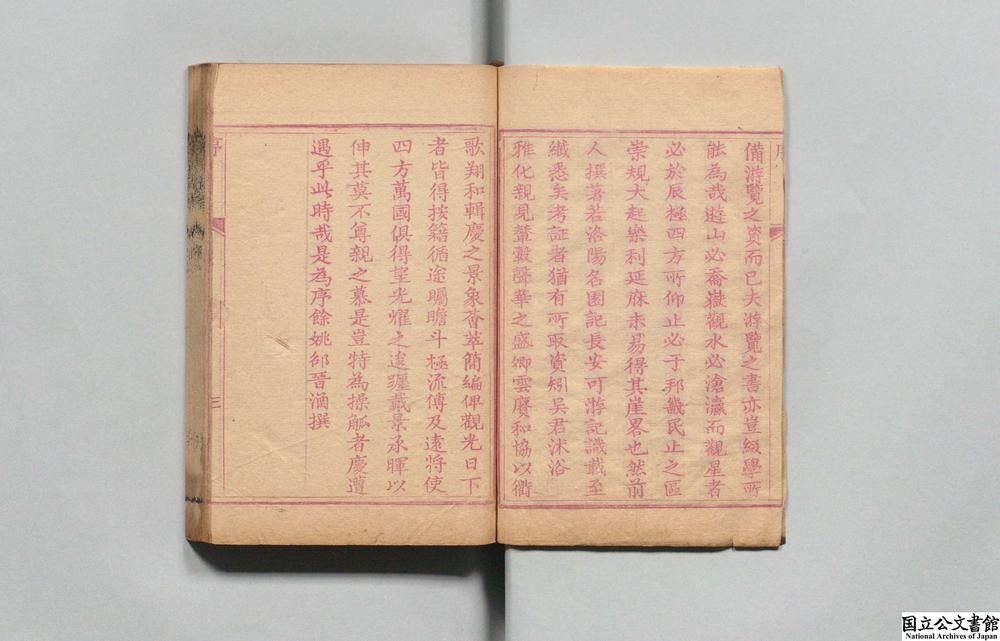 備游覽之資而已夫游覽之書亦豈綴學所
能為哉遊山必喬嶽觀水必滄瀛而觀星者
必於辰極四方所仰止必于邦畿民止之區
崇規大起樂利延庥未易得其崖畧也然前
人撰著若洛陽名園記長安可游記識載至
纖悉矣考証者猶有所取資矧吳君沐浴
雅化親見輦轂聲華之盛卿雲賡和協以衢
歌翔和輯慶之景象薈萃簡編俾觀光日下
者皆得按籍循途矚瞻斗極流傳及遠將使
四方萬國俱得望光燿之逵躔戴景承暉以
伸其莫不尊親之慕是豈特為操觚者慶遭
遇乎此時哉是為序餘姚邵晉涵撰
序
三
国立公文書館
National Archives of Japan